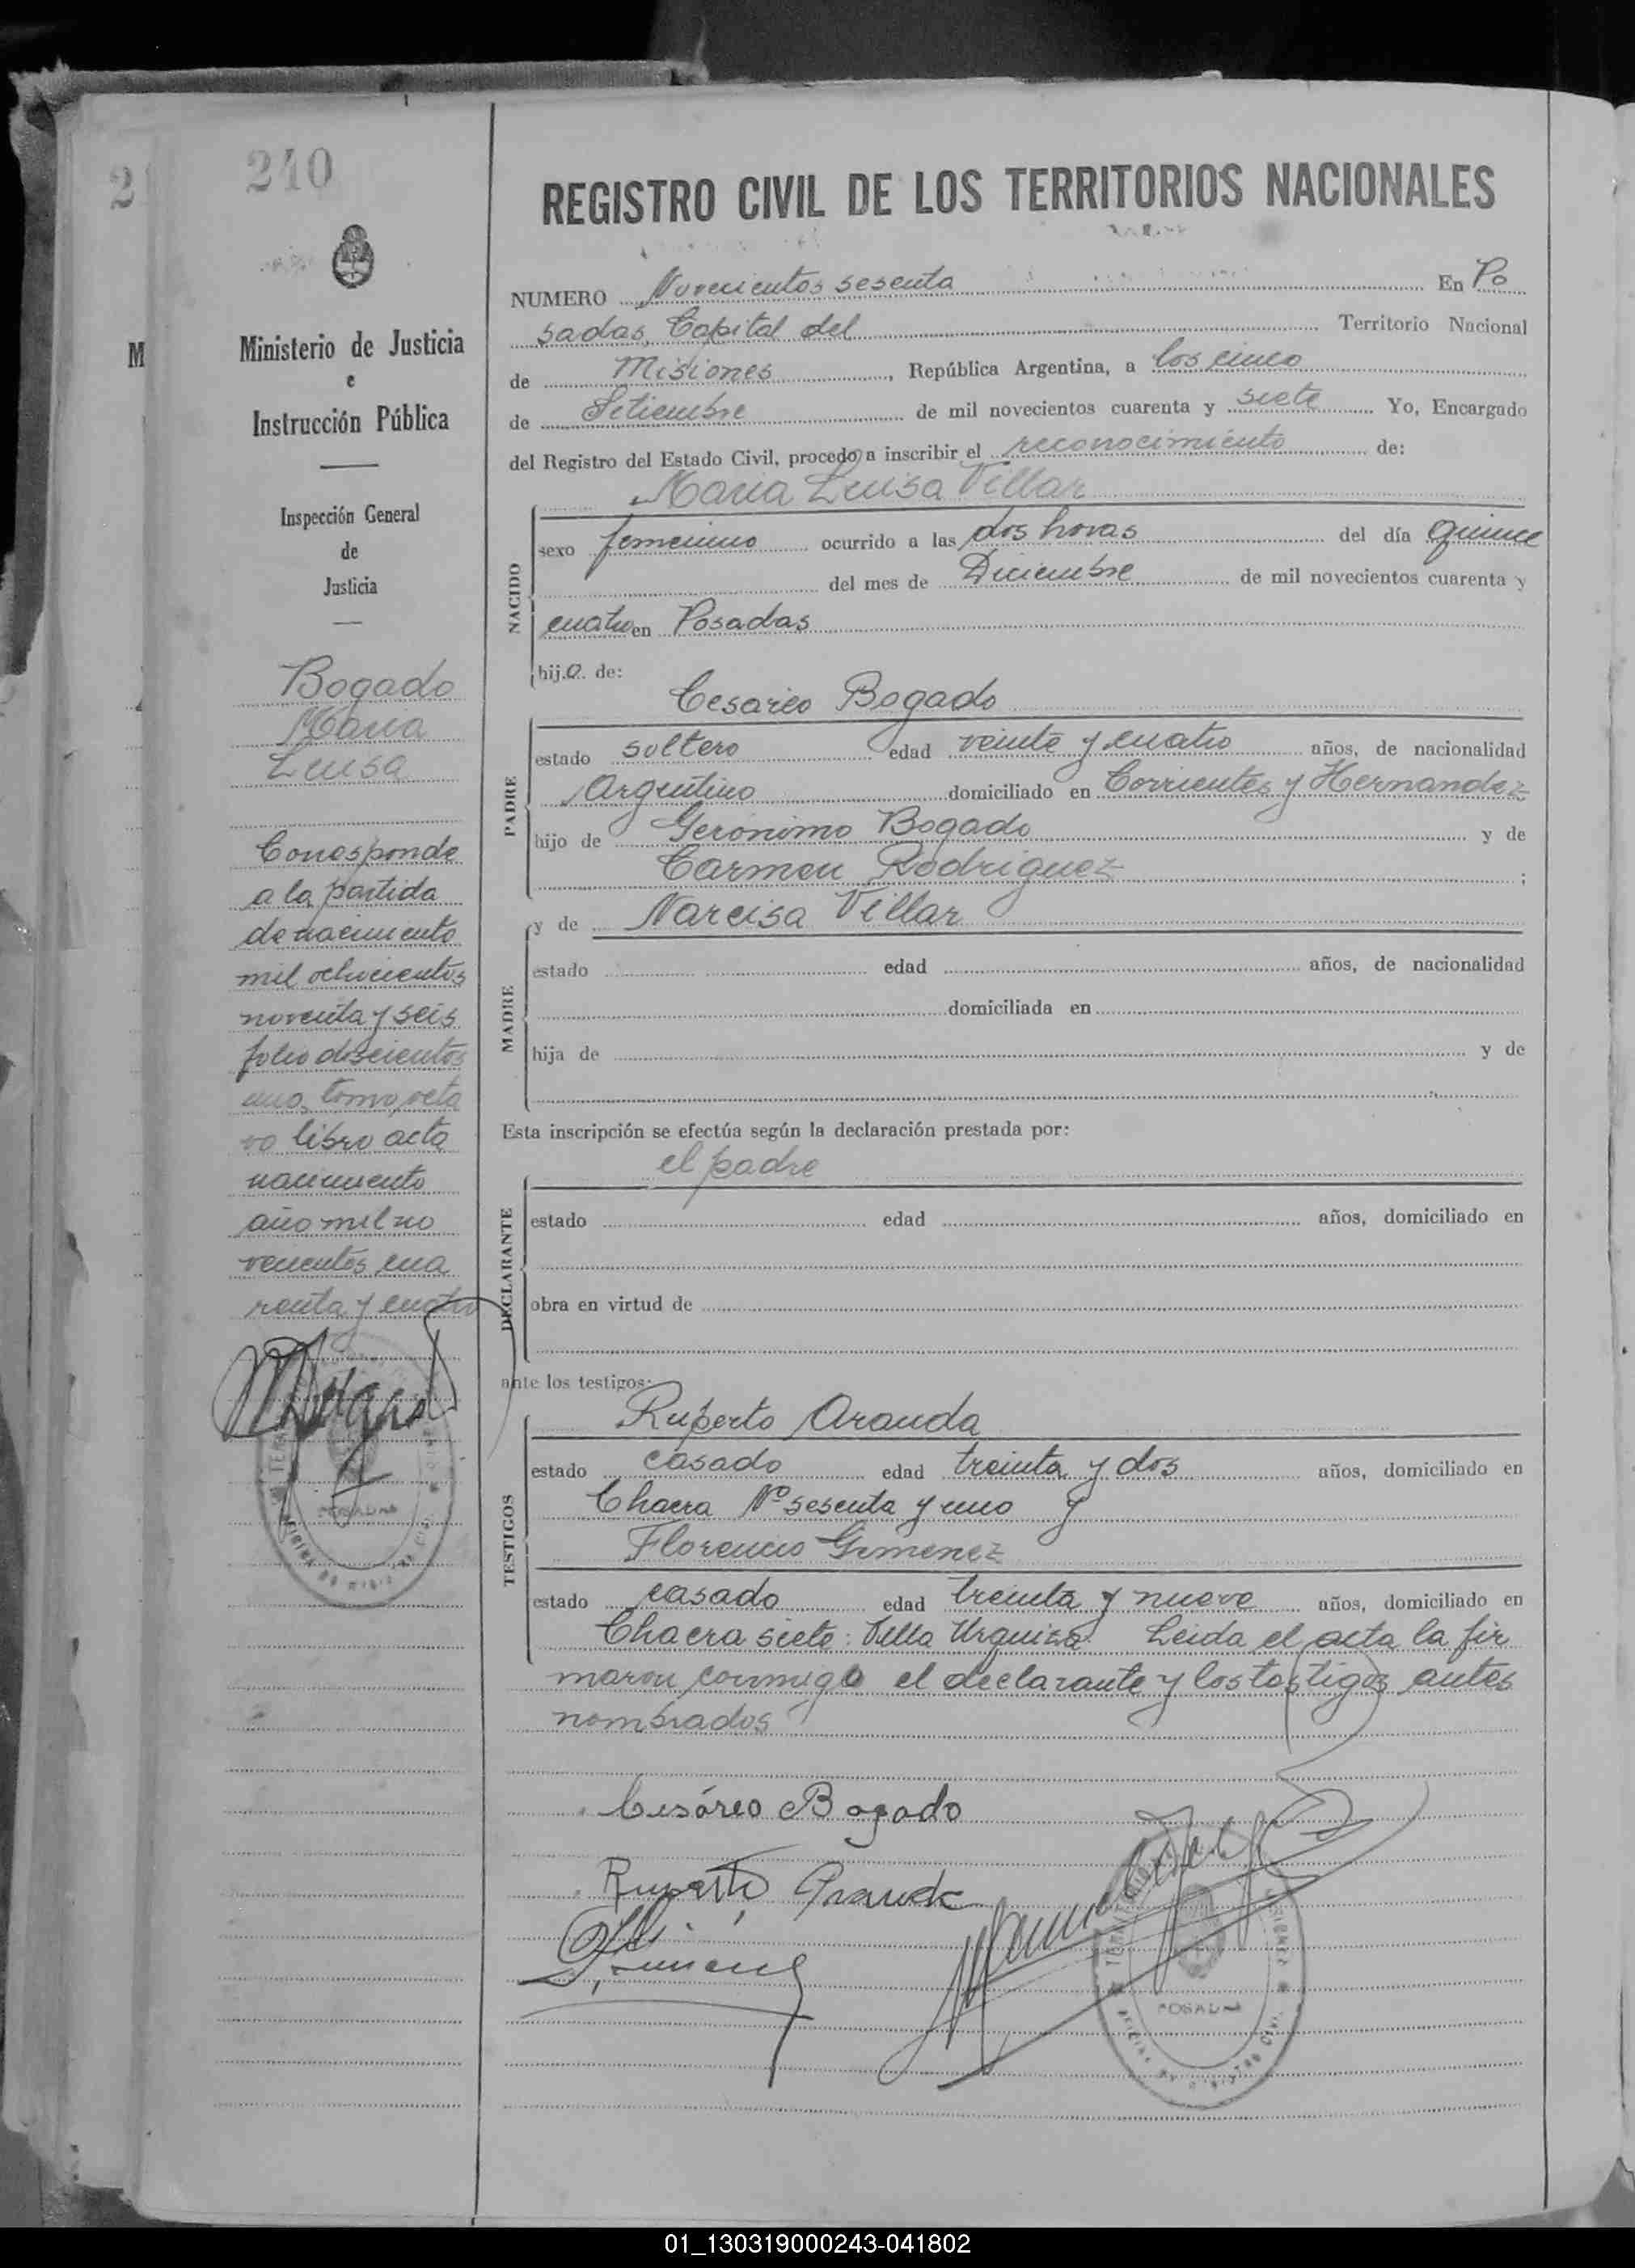 2
M
240
Ministerio de Justicia
e
Instrucción Pública
Inspección General
de
Justicia
Bogado
Maria
Luisa
Corresponde
a la partida
de nacimiento
mil ochocientos
noventa y seis
folio doscientos
uno, tomo octa
vo libro acta
nacimiento
año mil no
vecientos cua
renta y cuatro
REGISTRO CIVIL DE LOS TERRITORIOS NACIONALES
NUMERO Novecientos sesenta En Po
sadas, Capital del Territorio Nacional
de Misiones, República Argentina, a los cinco
de Setiembre de mil novecientos cuarenta y siete Yo, Encargado
del Registro del Estado Civil, procedo a inscribir el reconocimiento de:
Maria Luisa Villar
NACIDO
sexo femenino ocurrido a las dos horas del día quince
del mes de Diciembre de mil novecientos cuarenta y
cuatro en Posadas
hija de:
Cesareo Bogado
PADRE
estado soltero edad veinte y cuatro años, de nacionalidad
Argentino domiciliado en Corrientes y Hernandez
hijo de Geronimo Bogado y de
Carmen Rodriguez ;
MADRE
y de Narcisa Villar
estado edad años, de nacionalidad
domiciliada en
hija de y de
Esta inscripción se efectúa según la declaración prestada por:
el padre
DECLARANTE
estado edad años, domiciliado en
obra en virtud de
ante los testigos:
Ruperto Aranda
TESTIGOS
estado casado edad treinta y dos años, domiciliado en
Chacra Nº sesenta y uno y
Florencio Gimenez
estado casado edad treinta y nueve años, domiciliado en
Chacra siete: Villa Urquiza. Leida el acta la fir
maron conmigo el declarante y los testigos antes
nombrados
Cesáreo Bogado
Ruperto Aranda
POSADAS
01_130319000243-041802